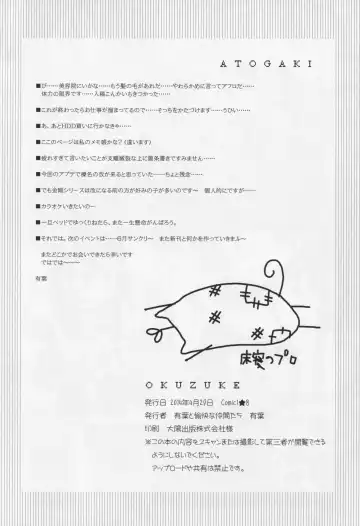 ATOGAKI
■び……美容院にいかな……もう髪の毛があれだ……やわらかめに言ってアフロだ……
体力の限界です……入稿こんかいもきつかった……
■これが終わったらお仕事が溜まってるので……そっちをかたづけます……うひい……
■あ、あとHDD買いに行かなきゃ……
■ここのページは私のメモ帳かな？(違います)
■疲れすぎて言いたいことが支離滅裂な上に箇条書きですみません……
■今回のアプデで榛名の改が来ると思っていた……ちょっと残念……
■でも金剛シリーズは改になる前の方が好みの子が多いのです～　個人的にですが……
■カラオケいきたいの～
■一旦ベッドでゆっくりねたら、また一生懸命がんばろう。
■それでは。次のイベントは……6月サンクリ～　また新刊と何かを作っていきまふ～
またどこかでお会いできたら幸いです
ではでは～～～
有葉
床寝っプロ
OKUZUKE
発行日　2014年4月29日　Comic1★8
発行者　有葉と愉快な仲間たち　有葉
印刷　大陽出版株式会社様
※この本の内容をスキャンまたは撮影して第三者が閲覧できる
ようにしないでください。
アップロードや共有は禁止です。